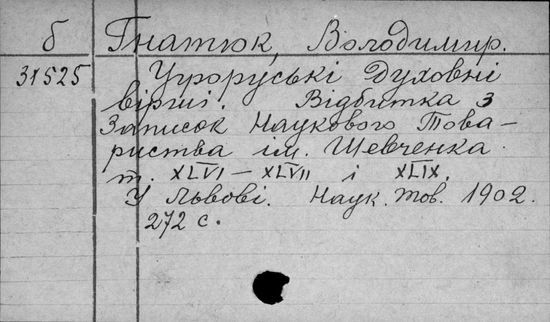 б Гнатюк, Володимир.
31525 Угроруські духовні
вірші. Відбитка з
Записок Наукового Това-
риства ім. Шевченка.
т. XLVI – XLVII і XLIX.
У Львові. Наук. тов. 1902.
272 с.